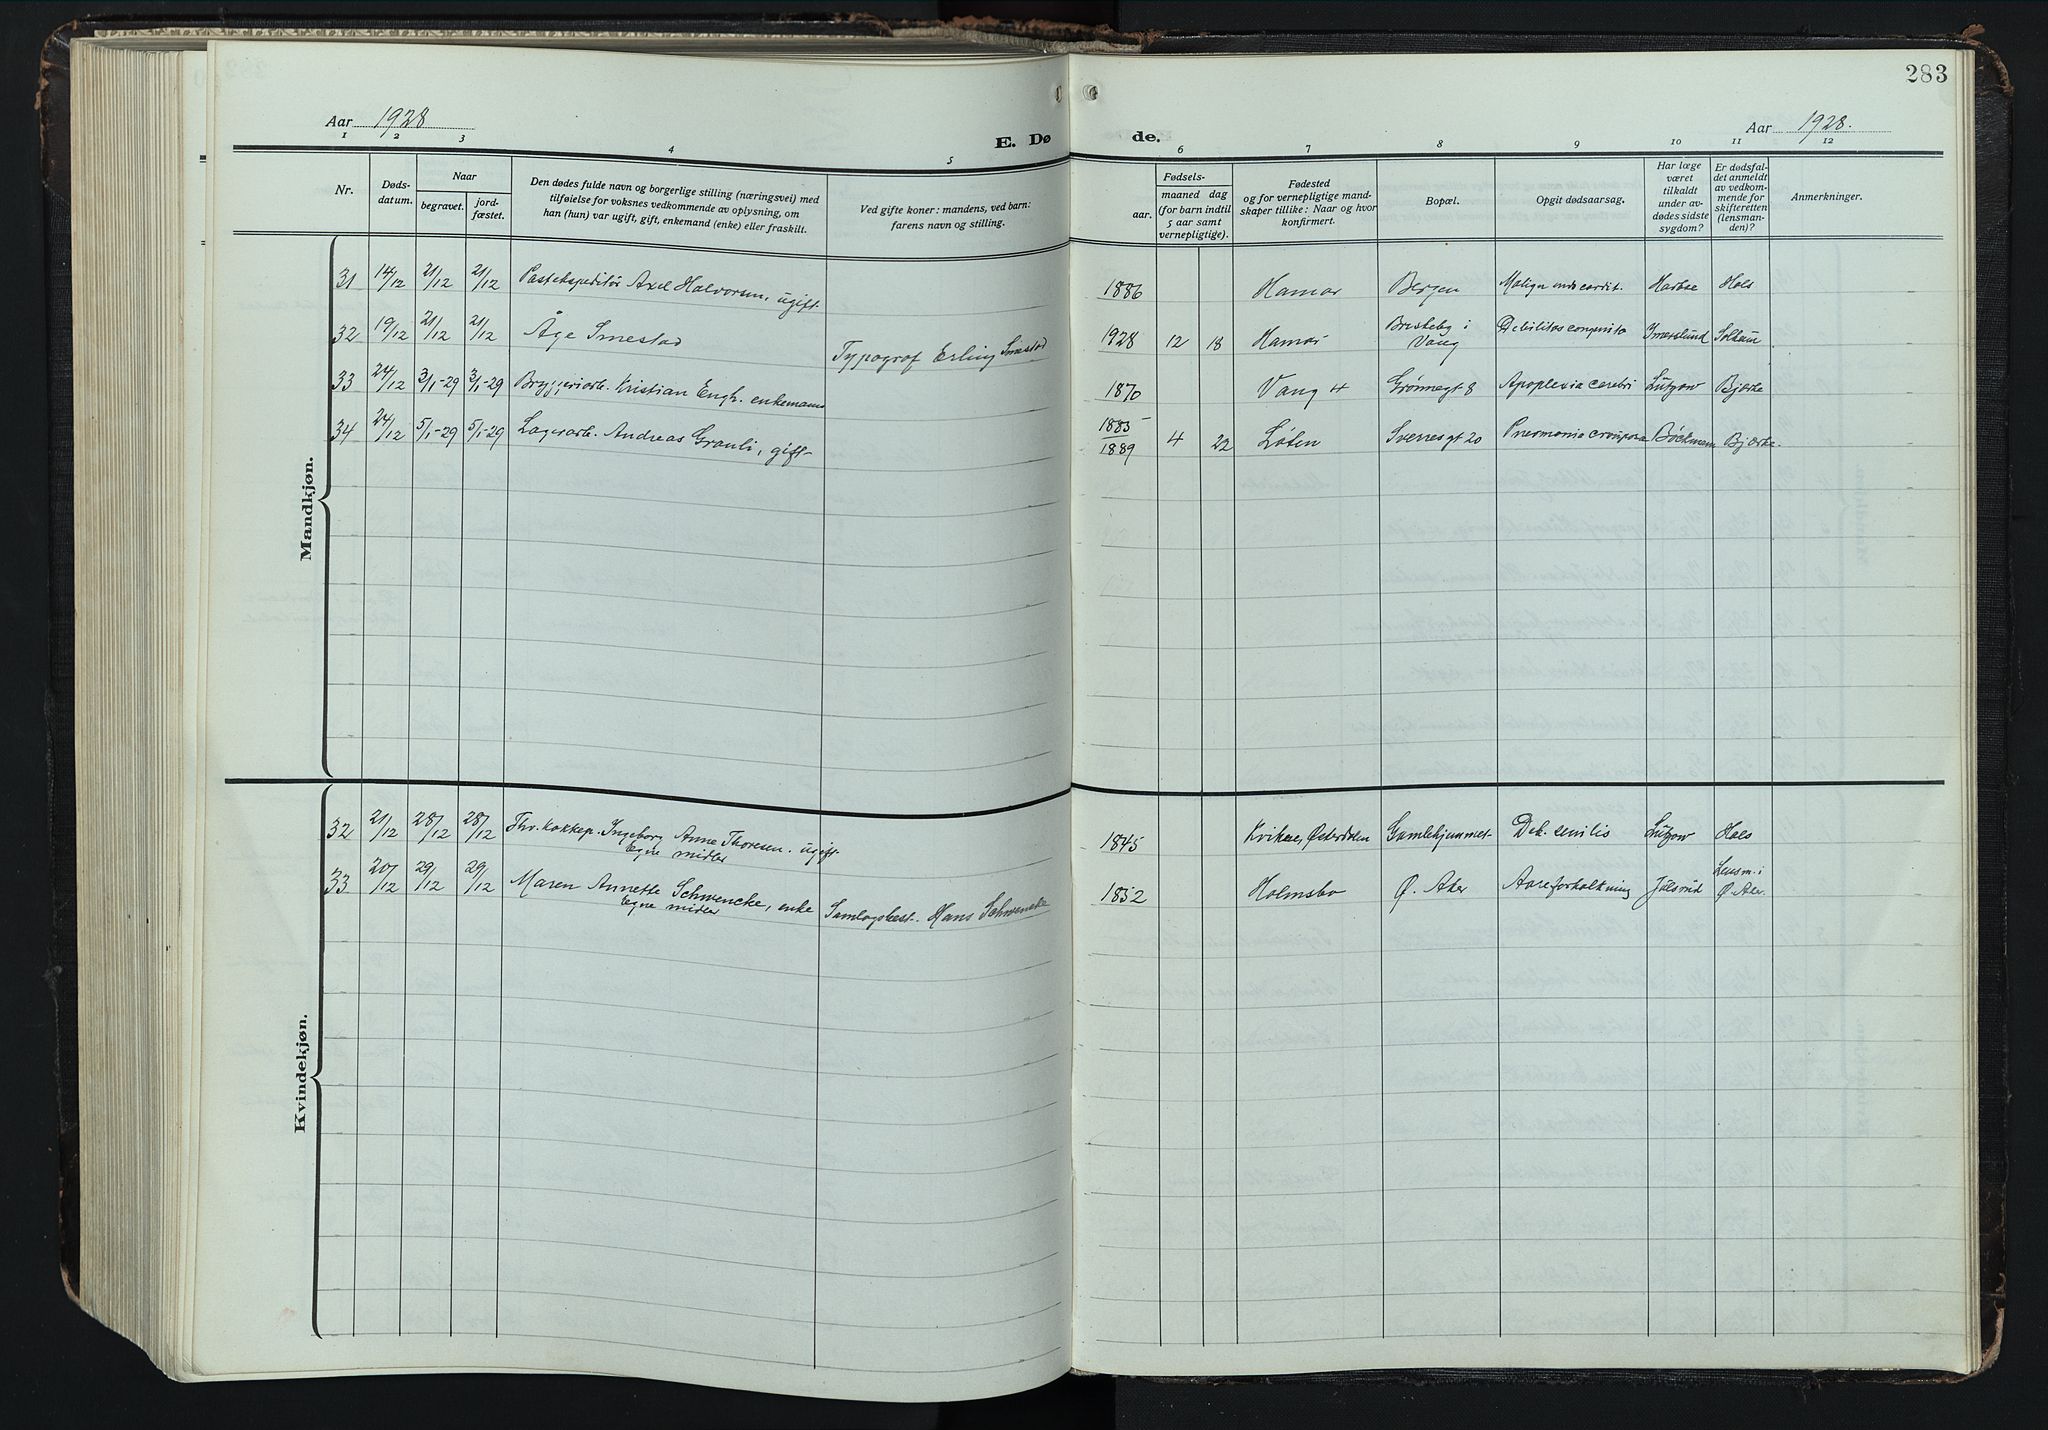 283
Aar 1928
Aar 1928.
E. Dø de.
1 2 3 4 5 6 7 8 9 10 11 12
Nr.
Døds-
datum.
Naar
begravet.
jord-
fæstet.
Den dødes fulde navn og borgerlige stilling (næringsvei) med
tilføielse for voksnes vedkommende av oplysning, om
han (hun) var ugift, gift, enkemand (enke) eller fraskilt.
Ved gifte koner: mandens, ved barn:
farens navn og stilling.
Fødsels-
aar.
maaned dag
(for barn indtil
5 aar samt
vernepligtige).
Fødested
og for vernepligtige mand-
skaper tillike: Naar og hvor
konfirmert.
Bopæl.
Opgit dødsaarsag.
Har læge
været
tilkaldt
under av-
dødes sidste
sygdom?
Er dødsfal-
det anmeldt
av vedkom-
mende for
skifteretten
(lensman-
den)?
Anmerkninger.
Mandkjøn.
31 14/12 21/12 21/12 Postekspeditør Axel Halvorsen, ugift. 1886 Hamar Bergen Malign endocardit. Harboe Hols
32 19/12 21/12 21/12 Åge Smestad Typograf Erling Smestad 1928 12 18 Hamar Briskeby i Vang Debilitas congenita Imerslund Solheim
33 24/12 3/1-29 3/1-29 Bryggeriarb. Kristian Engh. enkemann 1870 Vang 4 Grønnegt 8 Apoplexia cerebri Lützow Bjerke
34 24/12 5/1-29 5/1-29 Lagerarb. Andreas Grauli, gift- 1885/1889 4 22 Løten Svenesgt 20 Pneumonia crouposa Bóckmann Bjerke
Kvindekjøn.
32 21/12 28/12 28/12 Fhv. kokkep. Ingeborg Anne Thoresen. ugift- 1845 Kvikne, Østerdalen Gamlehjemmet- Deb. senilis Lützow Hols
Egne midler
33 20/12 29/12 29/12 Maren Annette Schwencke, enke Samlagsbest. Hans Schwencke 1852 Holmsbo Ø. Aker Aareforkalkning Jålsrud Lensm. i Ø. Aker.
Egne midler